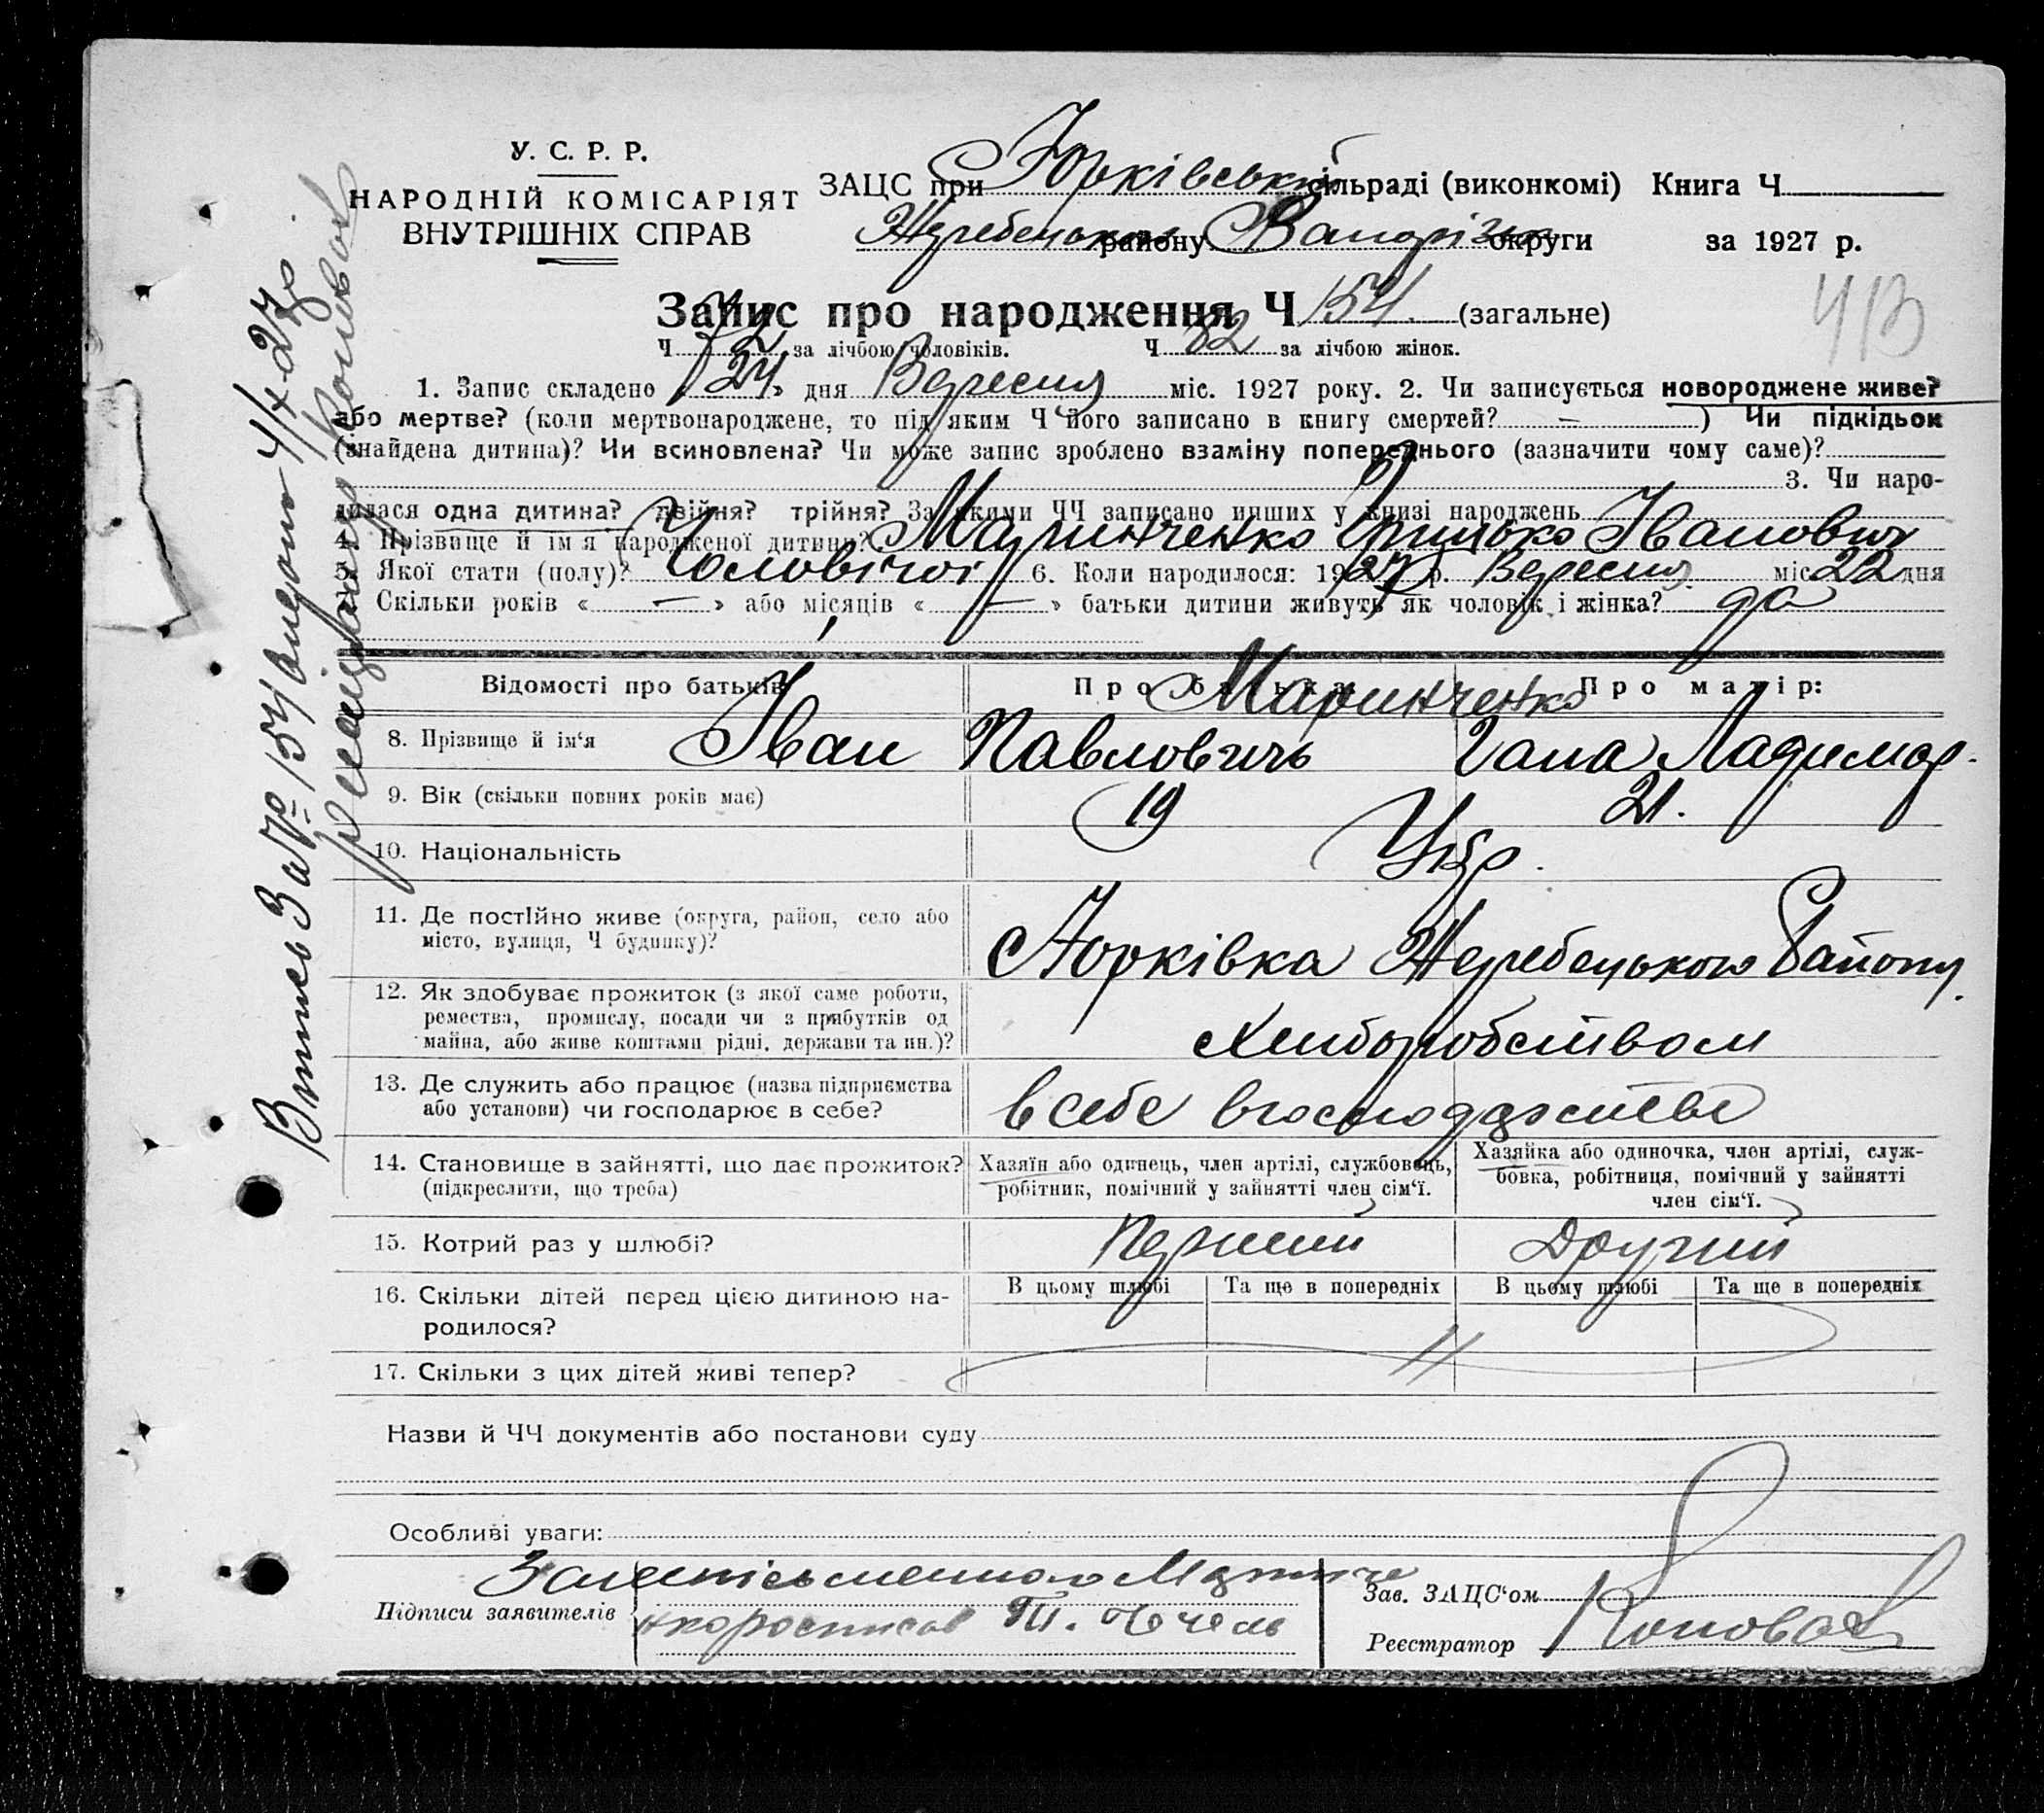 У. С. Р. Р.
НАРОДНІЙ КОМІСАРІЯТ
ВНУТРІШНІХ СПРАВ
ЗАЦС при Юрківській сільраді (виконкомі) Книга Ч
Жеребецького району Запоріз округи за 1927 р.
413
Запис про народження Ч 154. (загальне)
Ч 72 за лічбою чоловіків. Ч 82 за лічбою жінок.
1. Запис складено « 24 » дня Вересня міс. 1927 року. 2. Чи записується новороджене живе?
або мертве? (коли мертвонароджене, то під яким Ч його записано в книгу смертей? — ) Чи підкідьок
(знайдена дитина)? Чи всиновлена? Чи може запис зроблено взаміну попереднього (зазначити чому саме)?
3. Чи наро-
дилася одна дитина? двійня? трійня? За якими ЧЧ записано инших у книзі народжень
4. Прізвище й ім'я народженої дитини? Маринченко Грицько Іванович
5. Якої стати (полу)? Чоловічої 6. Коли народилося: 1927 р. Вересня міс. 22 дня
7. Скільки років « — » або місяців « — » батьки дитини живуть як чоловік і жінка? да
Відомості про батьків Про батька: Про матір:
Маринченко
8. Прізвище й ім'я Іван Павловичь Гана Ладимер.
9. Вік (скільки повних років має) 19 21.
10. Національність Укр.
11. Де постійно живе (округа, район, село або
місто, вулиця, Ч будинку)?
с Юрківка Жеребецького Району.
12. Як здобуває прожиток (з якої саме роботи,
ремества, промислу, посади чи з прибутків од
майна, або живе коштами рідні, держави та ин.)?
Хлиборобством
13. Де служить або працює (назва підприємства
або установи) чи господарює в себе?
в себе в господарстве
14. Становище в зайнятті, що дає прожиток?
(підкреслити, що треба)
Хазяїн або одинець, член артілі, службовець,
робітник, помічний у зайнятті член сім'ї.
Хазяйка або одиночка, член артілі, служ-
бовка, робітниця, помічний у зайнятті
член сім'ї.
15. Котрий раз у шлюбі? Перший Другий
16. Скільки дітей перед цією дитиною на-
родилося?
В цьому шлюбі Та ще в попередніх В цьому шлюбі Та ще в попередніх
17. Скільки з цих дітей живі тепер?
Назви й ЧЧ документів або постанови суду
Особливі уваги:
Підписи заявителів
Зав. ЗАЦС'ом
Реєстратор
Витясь За № 154